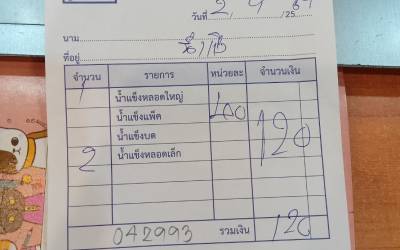 วันที่ 2 9 /25
นาม
ที่อยู่
จำนวน รายการ หน่วยละ จำนวนเงิน
1 น้ำแข็งหลอดใหญ่
น้ำแข็งแพ็ค
น้ำแข็งบด 120
2 น้ำแข็งหลอดเล็ก
042993 รวมเงิน 120